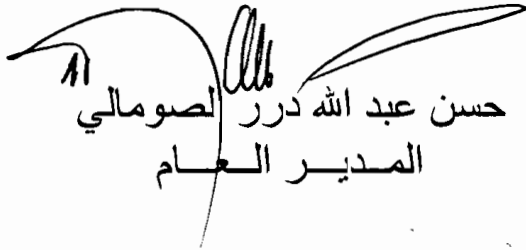 حسن عبد الله درر الصومالي
المديـر العـام